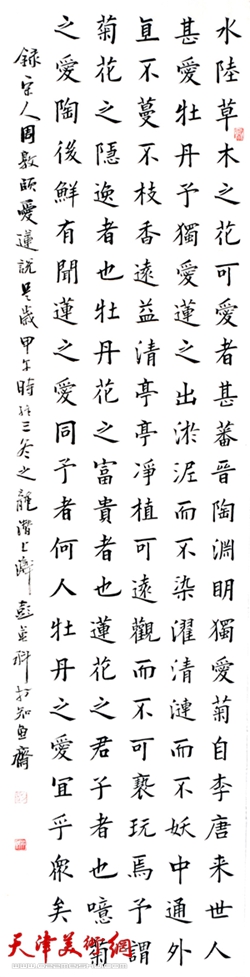 水陸草木之花可愛者甚蕃晉陶淵明獨愛菊自李唐来世人
甚愛牡丹予獨愛蓮之出淤泥而不染濯清漣而不妖中通外
直不蔓不枝香遠益清亭亭凈植可遠觀而不可褻玩焉予謂
菊花之隱逸者也牡丹花之富貴者也蓮花之君子者也噫菊
之愛陶後鮮有聞蓮之愛同予者何人牡丹之愛宜乎衆矣
錄宋人周敦頤愛蓮說是歲甲午時於三冬之龍潛上澣彭英科於知魚齋
天津美術網